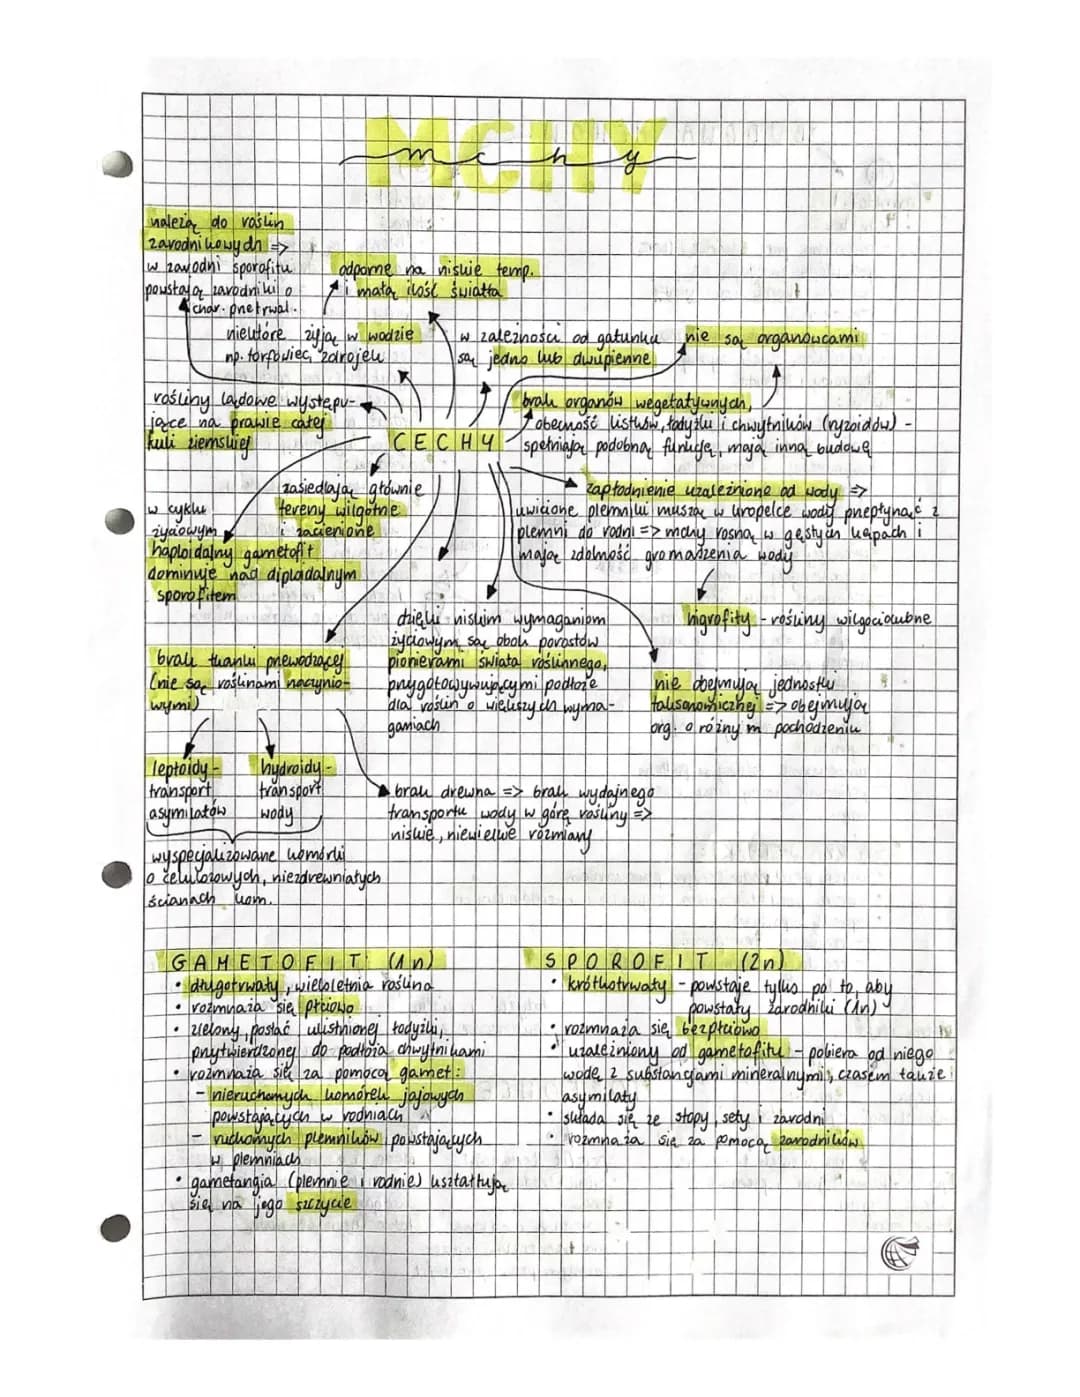 MCHY
mchy
należą do roślin
zarodnikowych =>
w zarodni sporofitu
powstają zarodniki o
char. przetrwal.
odporne na niskie temp.
i małą ilość światła
niektóre żyją w wodzie
np. torfowiec, zdrojek
w zależności od gatunku
są jedno lub dwupienne
nie są organowcami
rośliny lądowe występu-
jące na prawie całej
kuli ziemskiej
CECHY
brak organów wegetatywnych,
obecność listków, łodyżki i chwytników (ryzoidów) -
spełniają podobną funkcję, mają inną budowę
zasiedlają głównie
tereny wilgotne
i zacienione
zapłodnienie uzależnione od wody =>
uwicione plemniki muszą w kropelce wody przepłynąć z
plemni do rodni => mchy rosną w gęstych kępach i
mają zdolność gromadzenia wody
w cyklu
życiowym
haploidalny gametofit
dominuje nad diploidalnym
sporofitem
higrofity - rośliny wilgociolubne
dzięki niskim wymaganiom
życiowym są obok porostów
pionierami świata roślinnego,
przygotowywującymi podłoże
dla roślin o większych wyma-
ganiach
brak tkanki przewodzącej
(nie są roślinami naczynio-
wymi)
nie obejmują jednostki
taksonomicznej => obejmują
org. o różnym pochodzeniu
leptoidy -
transport
asymilatów
hydroidy -
transport
wody
brak drewna => brak wydajnego
transportu wody w górę rośliny =>
niskie, niewielkie rozmiary
wyspecjalizowane komórki
o celulozowych, niezdrewniałych
ścianach kom.
GAMETOFIT (1n)
• długotrwały, wieloletnia roślina
• rozmnaża się płciowo
• zielony, postać ulistnionej łodyżki,
przytwierdzonej do podłoża chwytnikami
• rozmnaża się za pomocą gamet:
- nieruchomych komórek jajowych
powstających w rodniach
- ruchomych plemników powstających
w plemniach
• gametangia (plemnie i rodnie) kształtują
się na jego szczycie
SPOROFIT (2n)
• krótkotrwały - powstaje tylko po to, aby
powstały zarodniki (1n)
• rozmnaża się bezpłciowo
• uzależniony od gametofitu - pobiera od niego
wodę z substancjami mineralnymi, czasem także
asymilaty
• składa się ze stopy, sety i zarodni
• rozmnaża się za pomocą zarodników